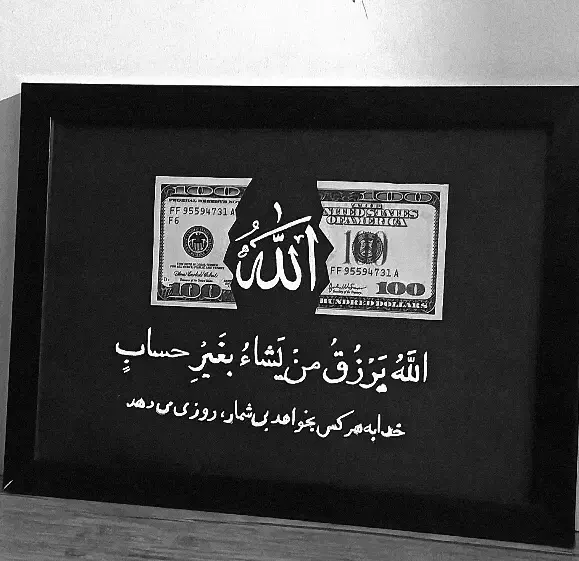 100 100
FEDERAL RESERVE NOTE
UNITED STATES
OF AMERICA
FF 95594731 A
F6
100
FF 95594731 A
100 100
HUNDRED DOLLARS
الله
اللَّهُ يَرْزُقُ مَنْ يَشاءُ بِغَيْرِ حسابٍ
خدا به هر کس بخواهد بی شمار، روزی می دهد